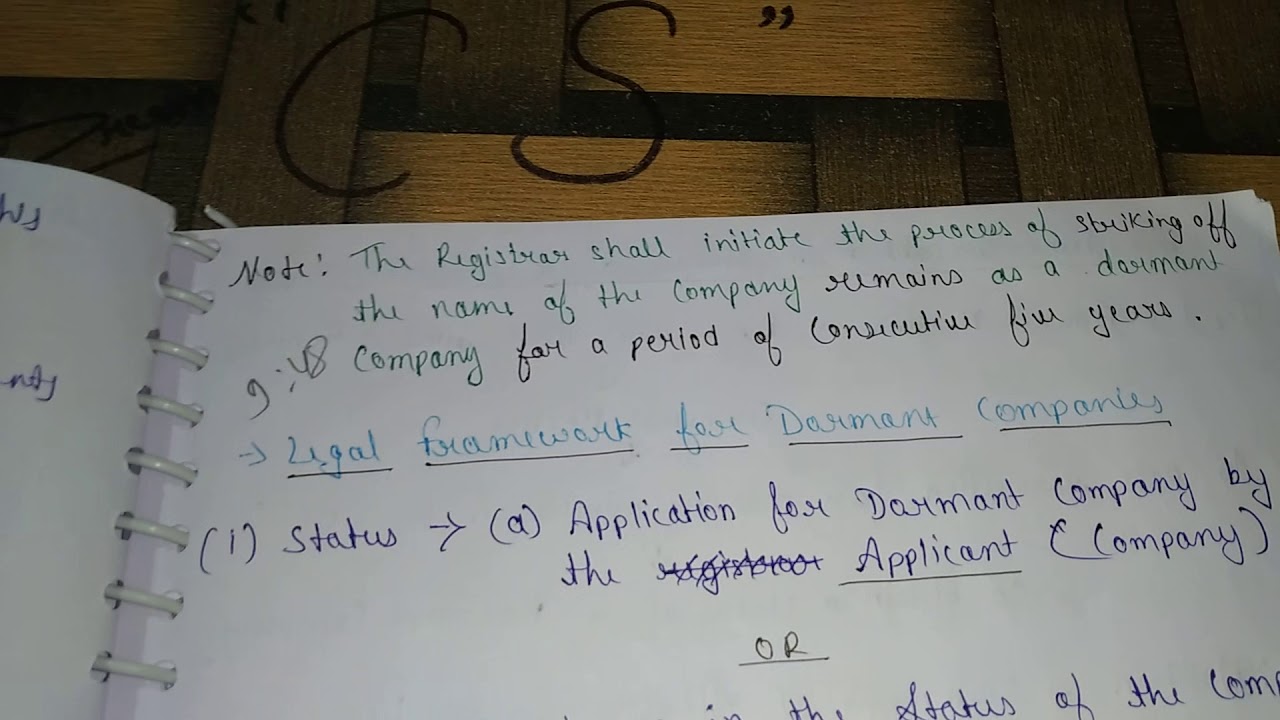 " CS "
Note: The Registrar shall initiate the process of striking off
the name of the company remains as a dormant
9:48 company for a period of consecutive five years.
→ Legal framework for Dormant Companies
(i) Status → (a) Application for Dormant Company by
the registrar Applicant (Company)
OR
in the Status of the Com